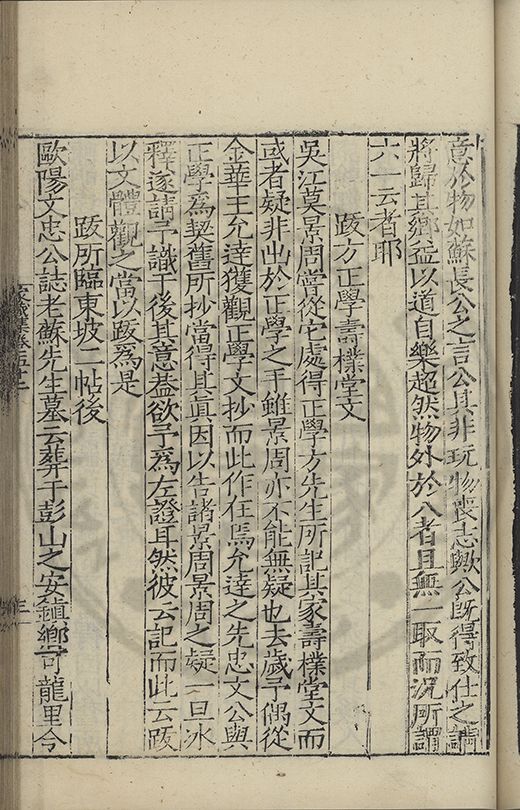 意於物如蘇長公之言公其非玩物喪志歟公旣得致仕之請
將歸其鄉益以道自樂超然物外於八者且無一取而況所謂
六一云者耶
跋方正學壽樸堂文
吳江莫景周嘗從它處得正學方先生所記其家壽樸堂文而
或者疑非出於正學之手雖景周亦不能無疑也去歲予偶從
金華王允達獲觀正學文抄而此作在焉允達之先忠文公與
正學爲契舊所抄當得其眞因以告諸景周景周之疑一旦氷
釋遂請予識于後其意葢欲予爲左證耳然彼云記而此云跋
以文體觀之當以跋爲是
跋所臨東坡二帖後
歐陽文忠公誌老蘇先生墓云葬于彭山之安鎮鄉可龍里今